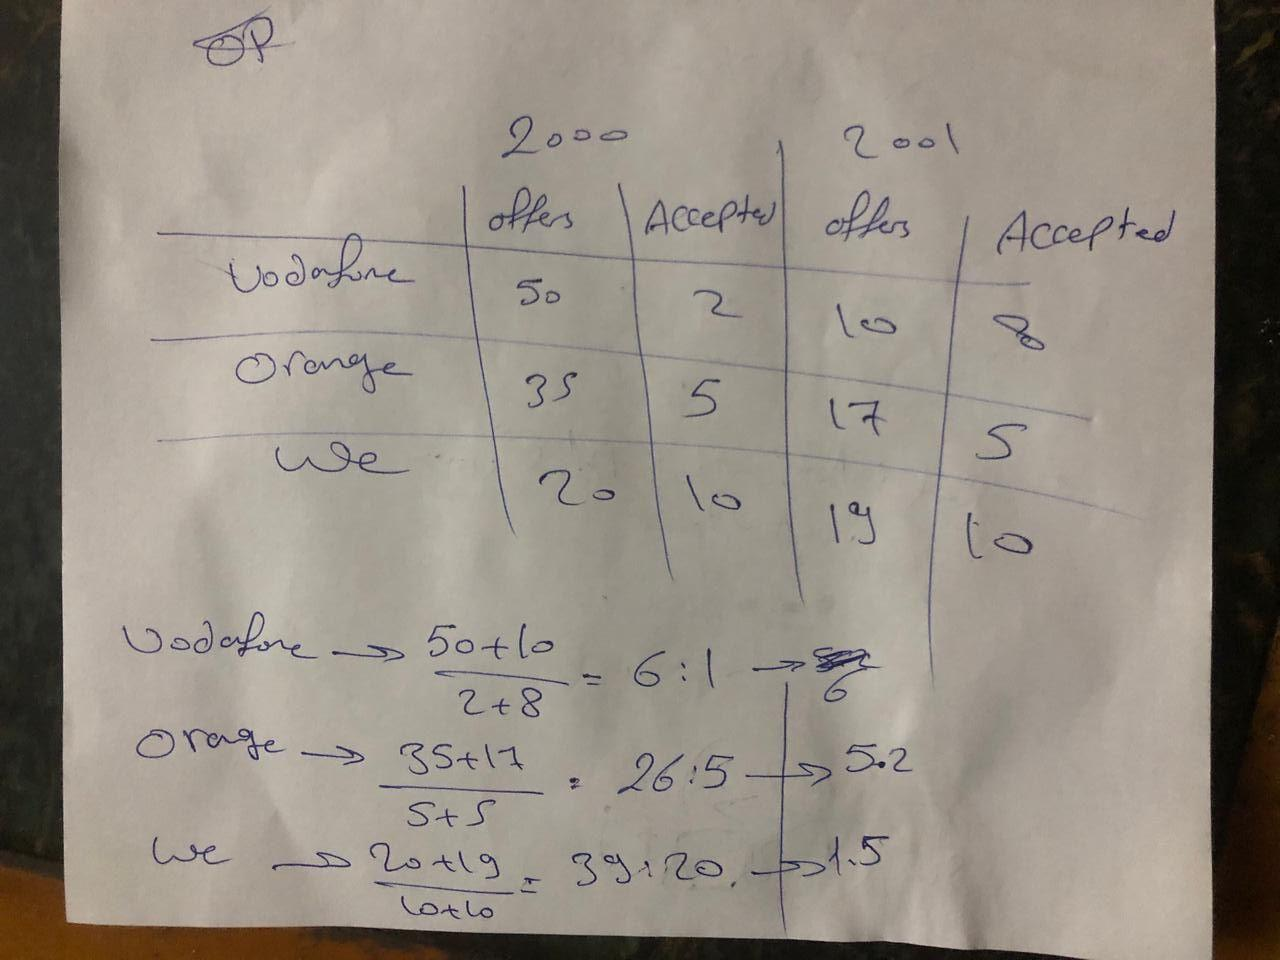 OR
2000 2001
offers Accepted offers Accepted
Vodafone 50 2 10 8
Orange 35 5 17 5
We 20 10 19 10
Vodafone → 50+10 / 2+8 = 6:1 → 6
Orange → 35+17 / 5+5 = 26:5 → 5.2
We → 20+19 / 10+10 = 39:20 → 1.5